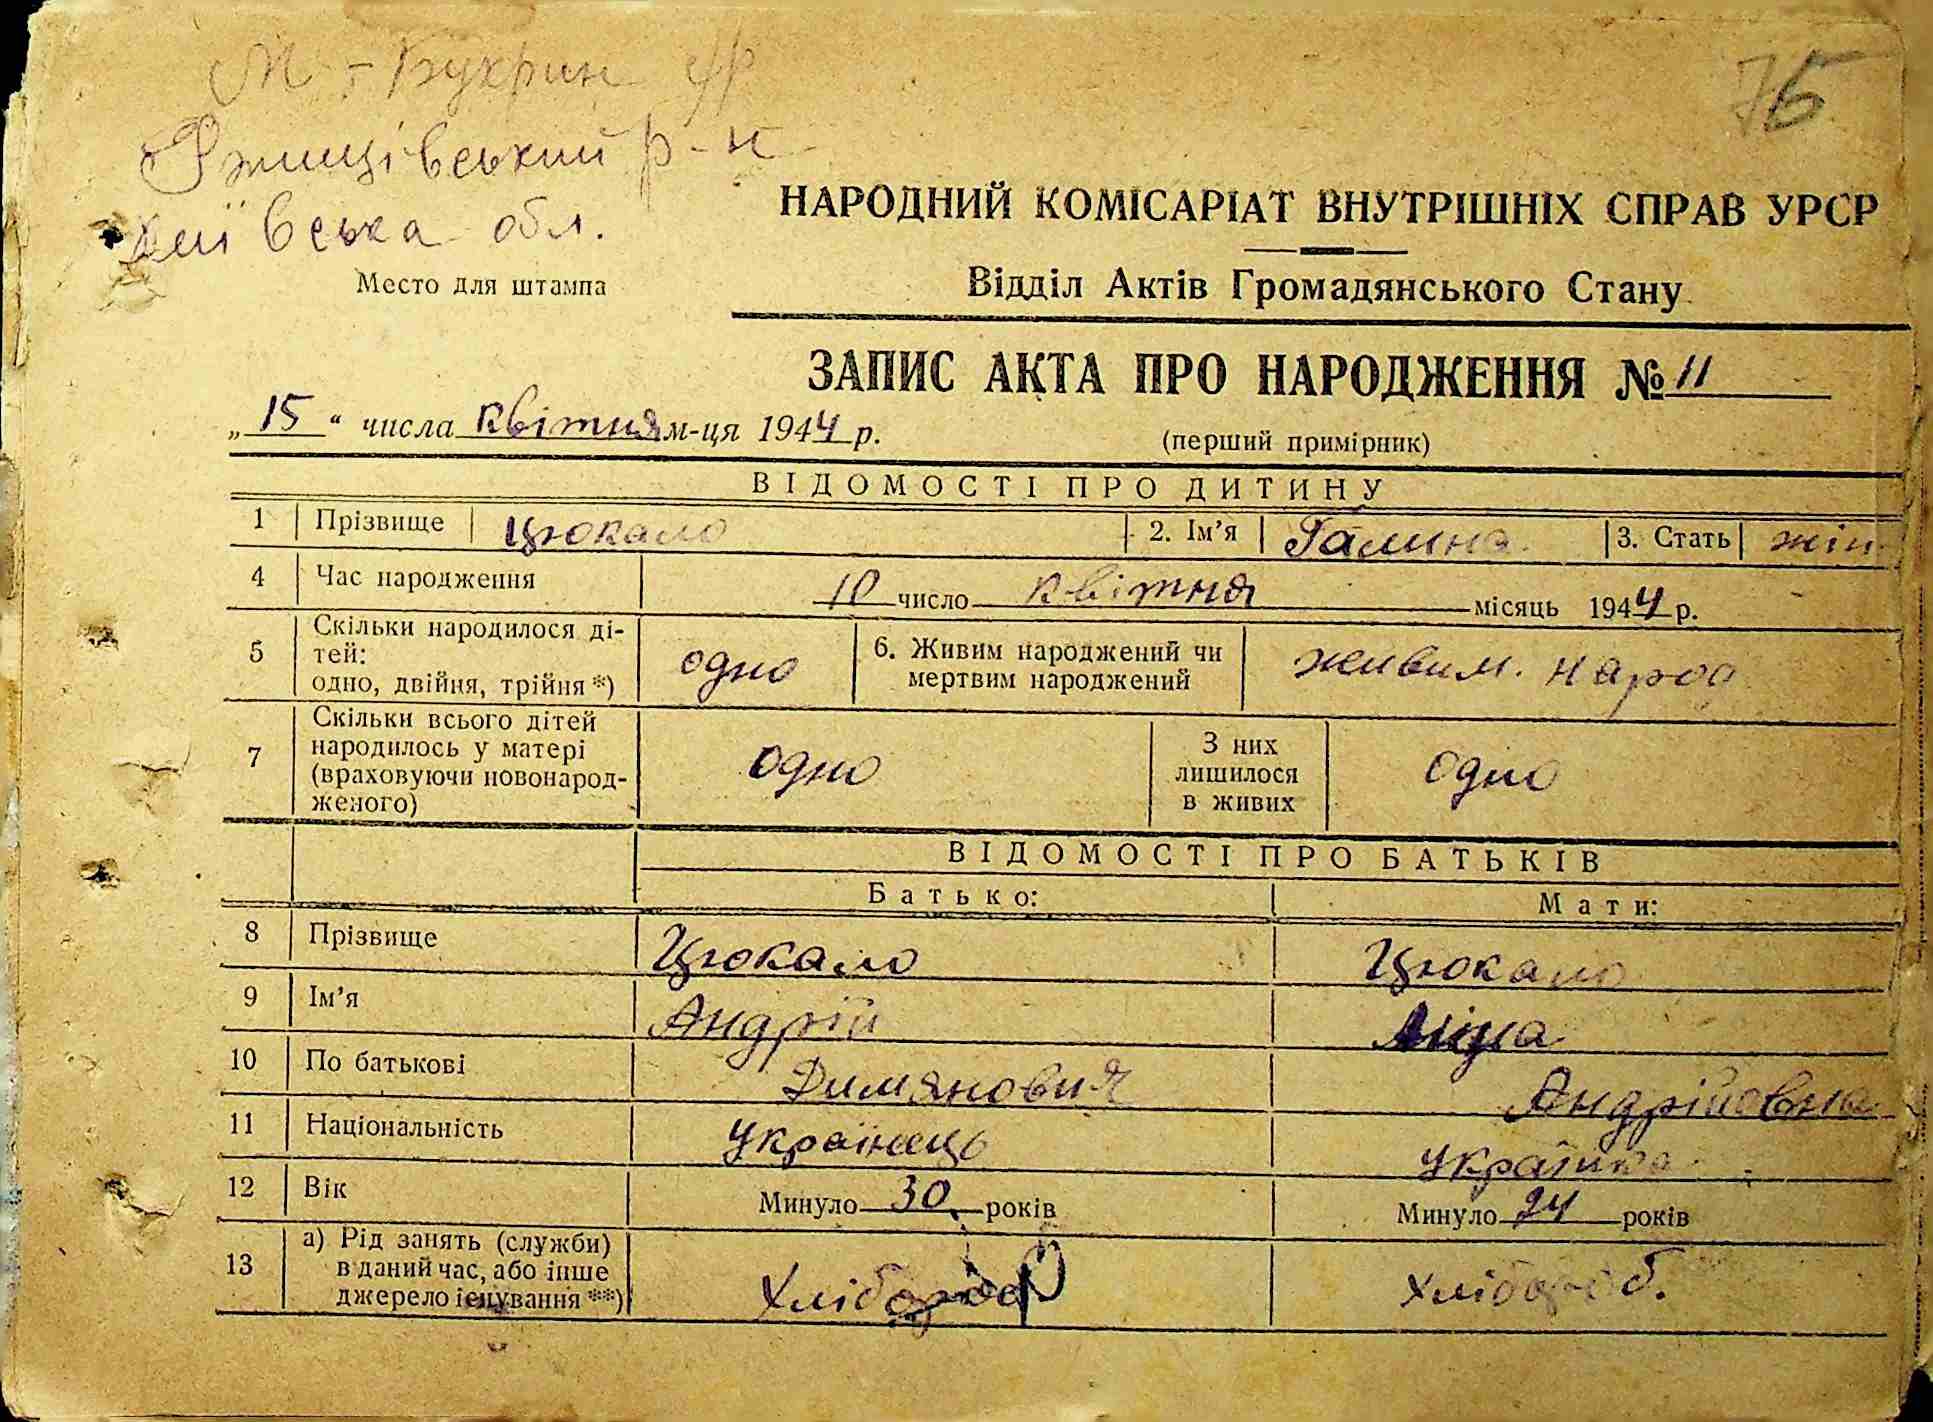 М-Букрин
75
Ржищівський р-н
Київська обл.
Место для штампа
НАРОДНИЙ КОМІСАРІАТ ВНУТРІШНІХ СПРАВ УРСР
Відділ Актів Громадянського Стану
ЗАПИС АКТА ПРО НАРОДЖЕННЯ № 11
„15“ числа квітня м-ця 1944 р.
(перший примірник)
ВІДОМОСТІ ПРО ДИТИНУ
1 Прізвище Цюкало 2. Ім'я Галина 3. Стать жін.
4 Час народження 10 число квітня місяць 1944 р.
5 Скільки народилося ді-
тей:
одно, двійня, трійня *)
одно
6. Живим народжений чи
мертвим народжений
живим. народ
7 Скільки всього дітей
народилось у матері
(враховуючи новонарод-
женого)
одно
З них
лишилося
в живих
одно
ВІДОМОСТІ ПРО БАТЬКІВ
Батько: Мати:
8 Прізвище Цюкало Цюкало
9 Ім'я Андрій
10 По батькові Димянович Андрійовна
11 Національність українець українка
12 Вік Минуло 30 років Минуло 24 років
13 а) Рід занять (служби)
в даний час, або інше
джерело існування **)
Хлібороб Хлібороб.